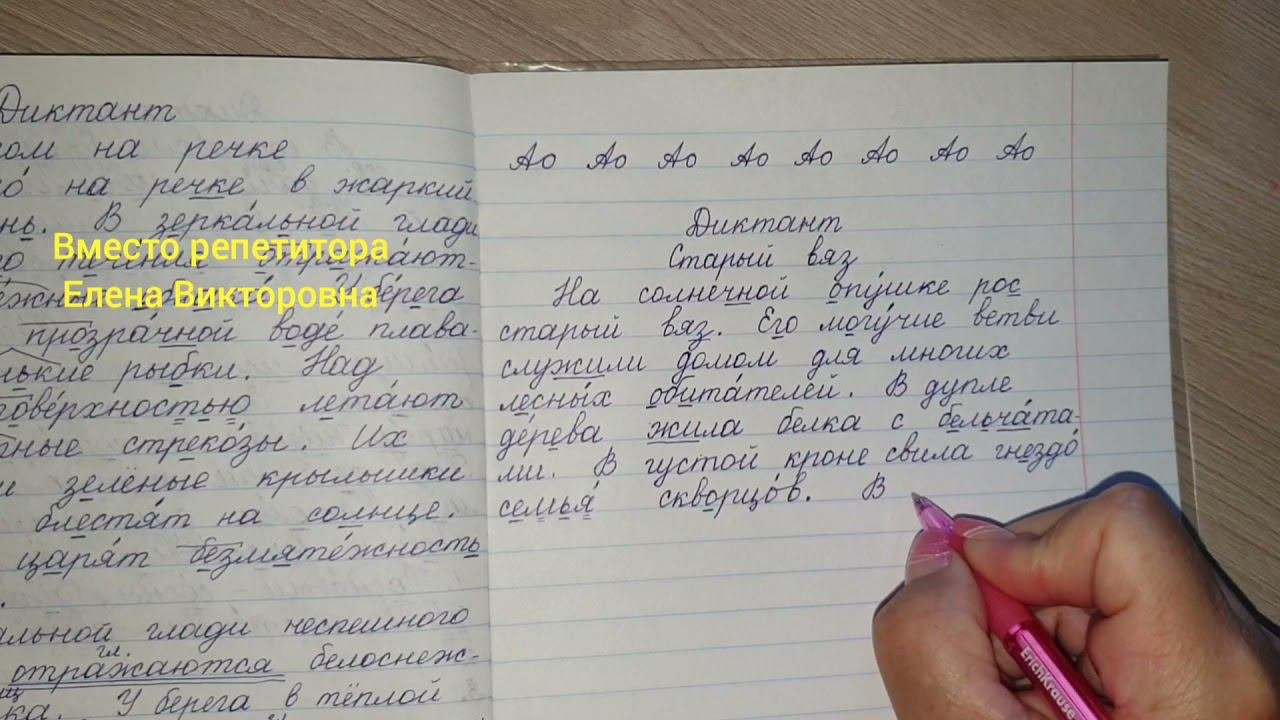 Диктант
на речке
на речке в жаркий
В зеркальной глади
течения отражают-
У берега
прозрачной воде плава-
рыбки. Над
поверхностью летают
стрекозы. Их
зелёные крылышки
блестят на солнце.
царят безмятежность
глади неспешного
гл.
отражаются белоснеж-
У берега в тёплой
Вместо репетитора
Елена Викторовна
Ао Ао Ао Ао Ао Ао Ао Ао
Диктант
Старый вяз
На солнечной опушке рос
старый вяз. Его могучие ветви
служили домом для многих
лесных обитателей. В дупле
дерева жила белка с бельчата-
ми. В густой кроне свила гнездо
семья скворцов. В
ErichKrause